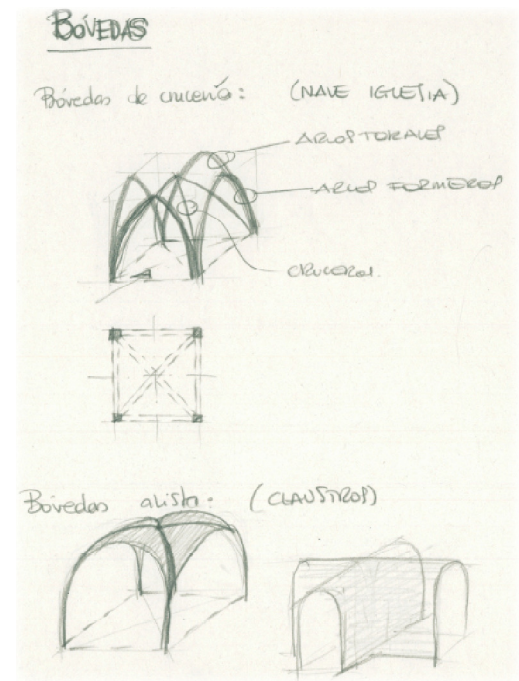 BÓVEDAS
Bóvedas de crucería: (NAVE IGLESIA)
ARCOS TORALES
ARCOS FORMEROS
CRUCEROS.
Bóvedas arista: (CLAUSTROS)